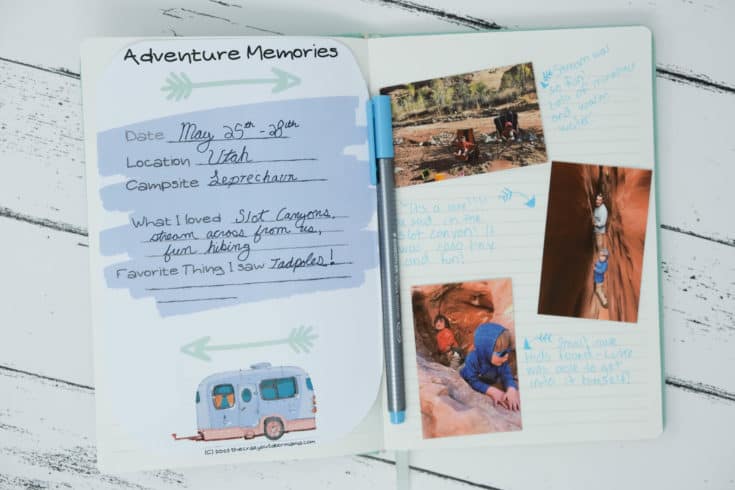 Adventure Memories
Date May 25th - 28th
Location Utah
Campsite Leprechaun
What I loved Slot Canyons,
stream across from us,
fun hiking
Favorite Thing I saw Tadpoles!
(C) 2023 thecrazyoutdoormama.com
Stream was
so fun!
Lots of
and
water
"It's a
said in the
slot canyon! It
was sooo
and fun!
Small cave
kids found -
was able to get
into it himself!